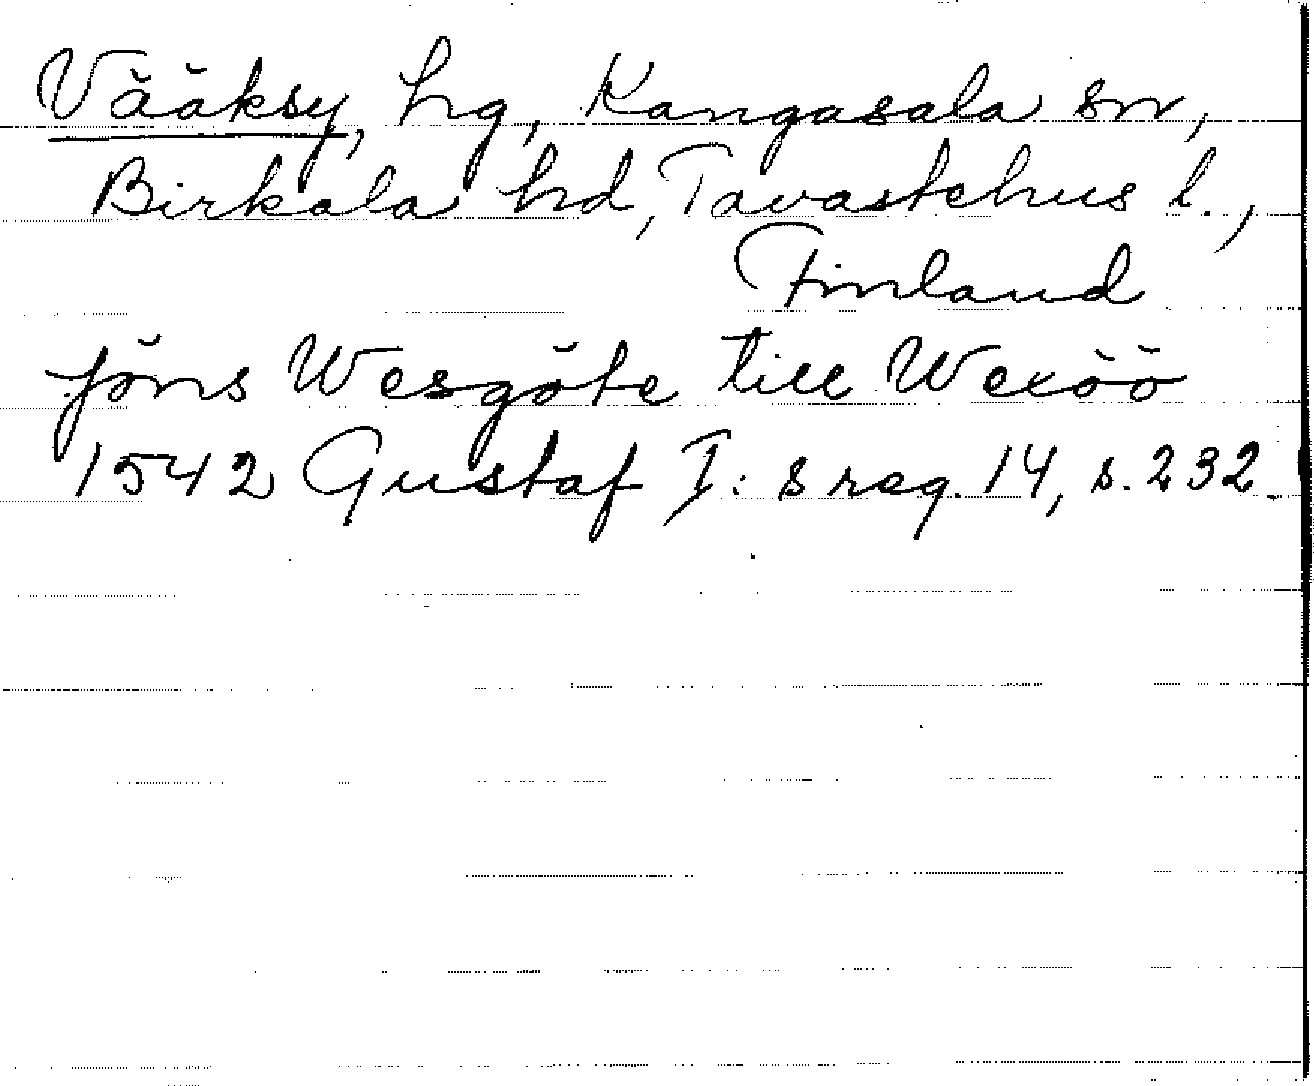 Vääksy, hg, Kangasala sn,
Birkala hd, Tavastehus l.,
Finland
Jöns Wesgöte till Wexöö
1542 Gustaf I:s reg. 14, s. 232